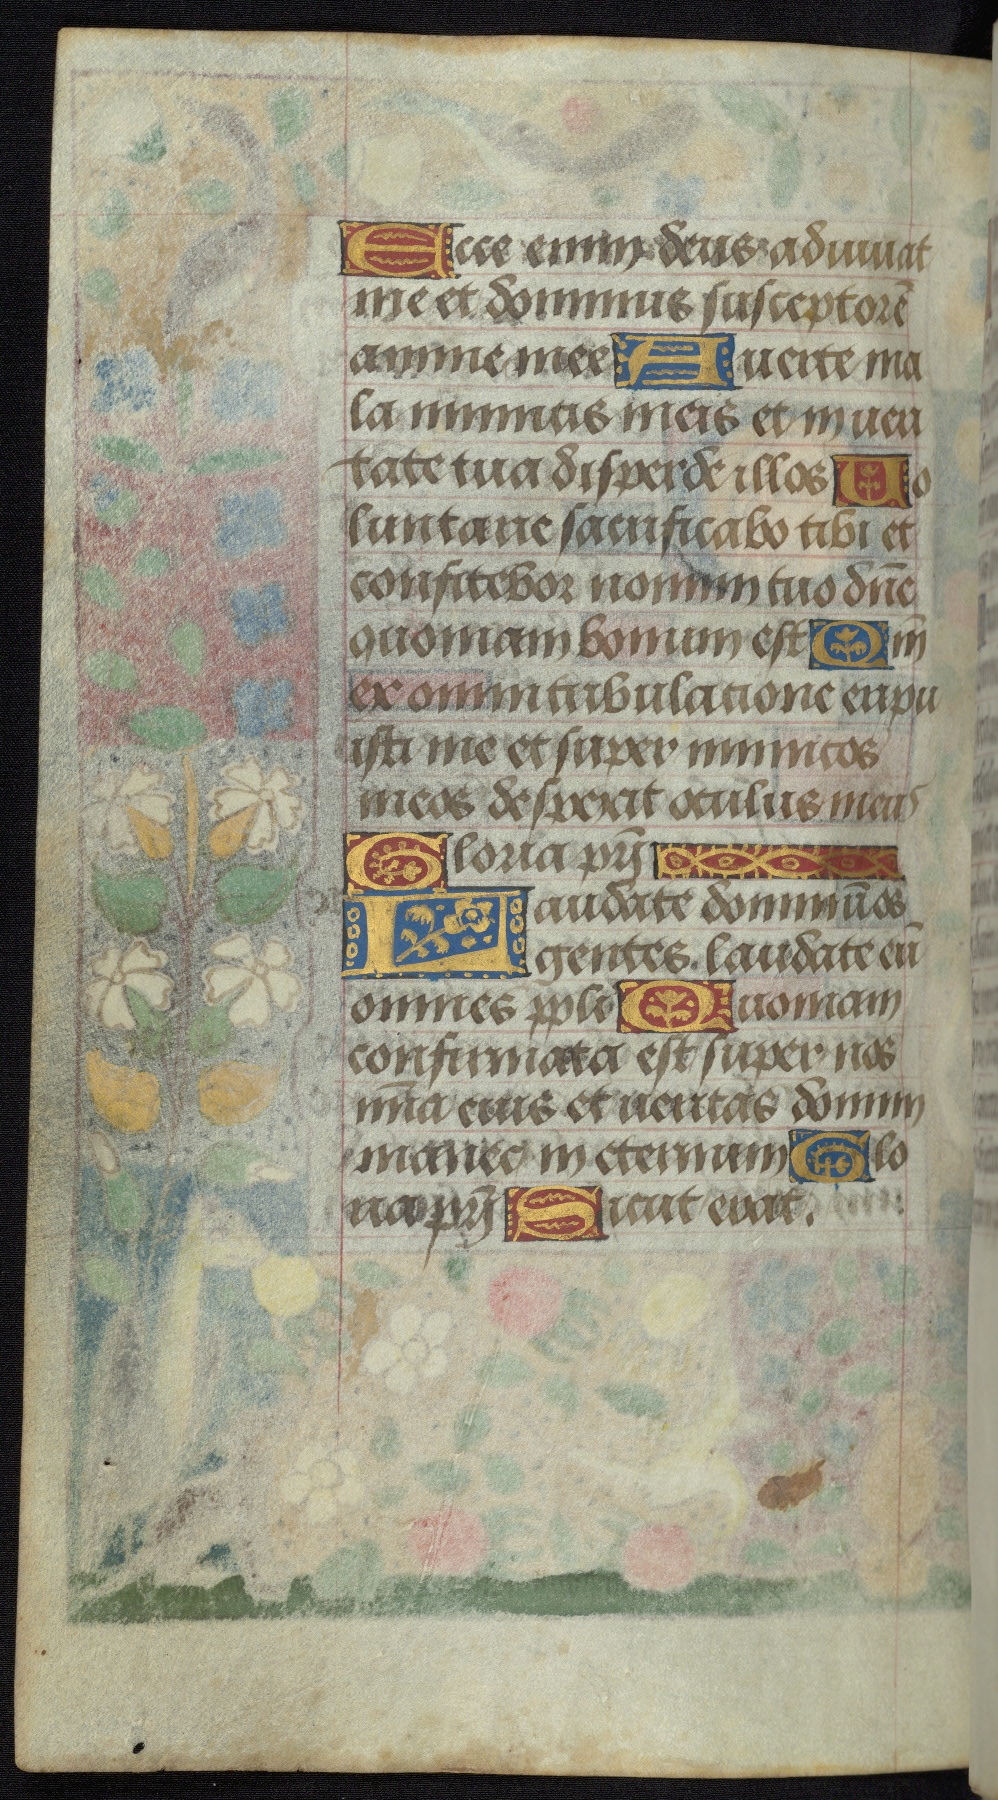 Ecce enim deus adiuuat
me et dominus susceptor ē
anime mee Auerte ma
la inimicis meis et in ueri
tate tua disperde illos Uo
luntarie sacrificabo tibi et
confitebor nomini tuo dñe
quoniam bonum est Qm̄
ex omni tribulatione eripu
isti me et super inimicos
meos despexit oculus meus
Gloria pr̃j
Laudate dominū os
gentes. laudate eū
omnes pplī Quoniam
confirmata est super nos
mīa eius et ueritas domini
manet in eternum Glo
ria pr̃j Sicut erat.